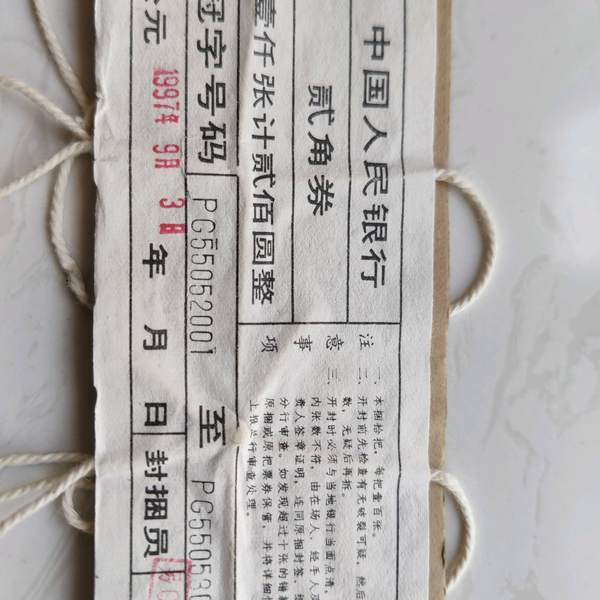 中国人民银行
贰角券
壹仟张计贰佰圆整
冠字号码 PG55052001 至 PG550530
公元 1997年 9月 3日 年 月 日 封捆员
注意事项
一、本捆拾把，每把壹百张。
二、开封前先检查有无破裂可疑，然后
数，无疑后再拆。
三、开封时必须与当地银行当面点清，
内张数不符，由在场人、经手人及
责人签章证明，连同原捆封签、
分行审查。如发现超过十张的错
原捆或原把票券保管，并将详细情
上报总行审查处理。